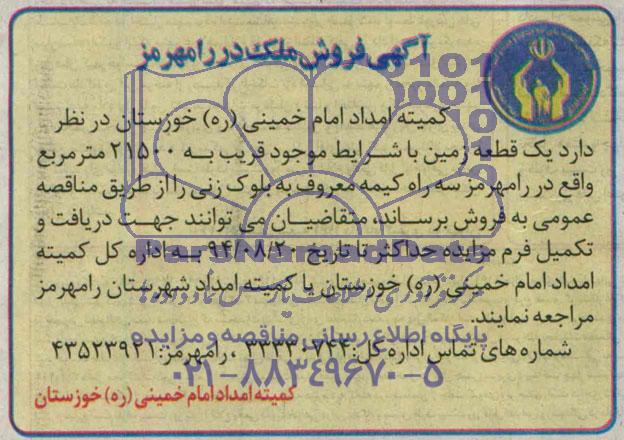 آگهی فروش ملک در رامهرمز
کمیته امداد امام خمینی (ره) خوزستان در نظر
دارد یک قطعه زمین با شرایط موجود قریب به ۲۱۵۰۰ مترمربع
واقع در رامهرمز سه راه کیمه معروف به بلوک زنی را از طریق مناقصه
عمومی به فروش برساند، متقاضیان می توانند جهت دریافت و
تکمیل فرم مزایده حداکثر تا تاریخ ۹۴/۰۸/۲۰ به اداره کل کمیته
امداد امام خمینی (ره) خوزستان یا کمیته امداد شهرستان رامهرمز
مراجعه نمایند.
پایگاه اطلاع رسانی مناقصه و مزایده
شماره های تماس اداره کل: ۳۳۳۳۰۷۴۴ ، رامهرمز: ۴۳۵۲۳۹۲۱
۰۲۱-۸۸۳۴۹۶۷۰-۵
کمیته امداد امام خمینی (ره) خوزستان